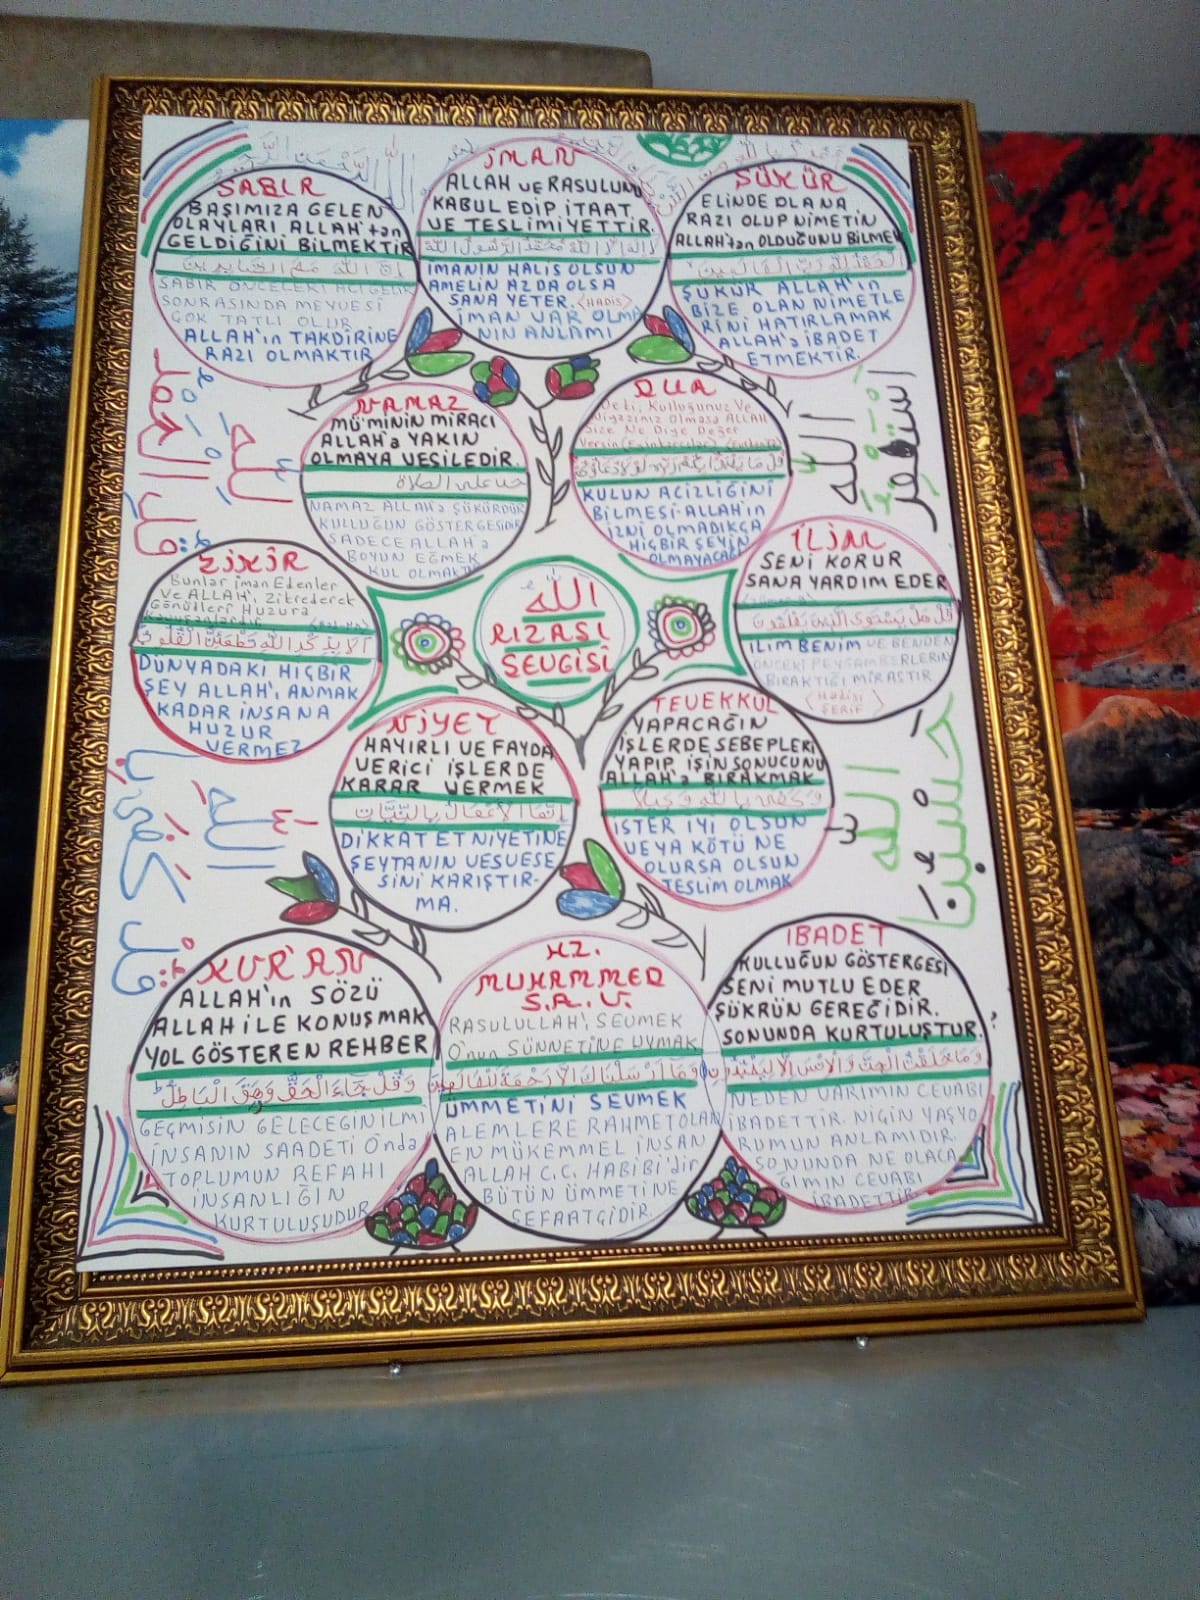 SABIR
BAŞIMIZA GELEN
OLAYLARI ALLAH'tan
GELDİĞİNİ BİLMEKTİR
إن الله مع الصابرين
SABIR ÖNCELERİ ACI GELİR
SONRASINDA MEYVESİ
ÇOK TATLI OLUR
ALLAH'ın TAKDİRİNE
RAZI OLMAKTIR
İMAN
ALLAH VE RASULUNU
KABUL EDİP İTAAT
VE TESLİMİYETTİR.
İMANIN HALİS OLSUN
AMELİN AZDA OLSA
SANA YETER. (HADİS)
İMAN VAR OLMA
NIN ANLAMI
ŞÜKÜR
ELİNDE OLANA
RAZI OLUP NİMETİN
ALLAH'tan OLDUĞUNU BİLMEK
الحمد لله رب العالمين
ŞÜKÜR ALLAH'ın
BİZE OLAN NİMETLE
RİNİ HATIRLAMAK
ALLAH'a İBADET
ETMEKTİR.
NAMAZ
MÜ'MİNİN MİRACI
ALLAH'a YAKIN
OLMAYA VESİLEDİR.
حي على الصلاة
NAMAZ ALLAH'a ŞÜKÜRDÜR
KULLUĞUN GÖSTERGESİDİR
SADECE ALLAH'a
BOYUN EĞMEK
KUL OLMAKTIR
DUA
Deki, Kulluğunuz Ve
Niyazınız Olmasa ALLAH
Size Ne Diye Değer
Versin
KULUN ACİZLİĞİNİ
BİLMESİ-ALLAH'ın
İZNİ OLMADIKÇA
HİÇBİR ŞEYİN
OLMAYACAĞI
استغفر
الله
قل الحمد
لله
ZİKİR
Bunlar İman Edenler
Ve ALLAH'ı Zikrederek
Gönülleri Huzura
Kavuşanlardır
ألا بذكر الله تطمئن القلوب
DÜNYADAKİ HİÇBİR
ŞEY ALLAH'ı ANMAK
KADAR İNSANA
HUZUR
VERMEZ
الله
RIZASI
SEVGİSİ
İLİM
SENİ KORUR
SANA YARDIM EDER
İLİM BENİM VE BENDEN
ÖNCEKİ PEYGAMBERLERİN
BIRAKTIĞI MİRASTIR
(Hadisi
ŞERİF)
NİYET
HAYIRLI VE FAYDA
VERİCİ İŞLERDE
KARAR VERMEK
إنما الأعمال بالنيات
DİKKAT ET NİYETİNE
ŞEYTANIN VESVESE
SİNİ KARIŞTIR-
MA.
TEVEKKÜL
YAPACAĞIN
İŞLERDE SEBEPLERİ
YAPIP, İŞİN SONUCUNU
ALLAH'a BIRAKMAK
وكفى بالله وكيلا
İSTER İYİ OLSUN
VEYA KÖTÜ NE
OLURSA OLSUN
TESLİM OLMAK
حسبنا
الله
قل كفى ب
الله
KUR'AN
ALLAH'ın SÖZÜ
ALLAH İLE KONUŞMAK
YOL GÖSTEREN REHBER
وقل جاء الحق وزهق الباطل
GEÇMİSİN GELECEĞİN İLMİ
İNSANIN SAADETİ Onda
TOPLUMUN REFAHI
İNSANLIĞIN
KURTULUŞUDUR
HZ.
MUHAMMED
S.A.V.
RASULULLAH'ı SEVMEK
O'nun SÜNNETİNE UYMAK
وما أرسلناك إلا رحمة للعالمين
ÜMMETİNİ SEVMEK
ALEMLERE RAHMET OLAN
EN MÜKEMMEL İNSAN
ALLAH C.C. HABİBİ'dir
BÜTÜN ÜMMETİNE
ŞEFAATÇİDİR.
İBADET
KULLUĞUN GÖSTERGESİ
SENİ MUTLU EDER
ŞÜKRÜN GEREĞİDİR.
SONUNDA KURTULUŞTUR.
وما خلقت الجن والإنس إلا ليعبدون
NEDEN VARIMIN CEVABI
İBADETTİR. NİÇİN YAŞIYO
RUMUN ANLAMIDIR.
SONUNDA NE OLACA
ĞIMIN CEVABI
İBADETTİR.